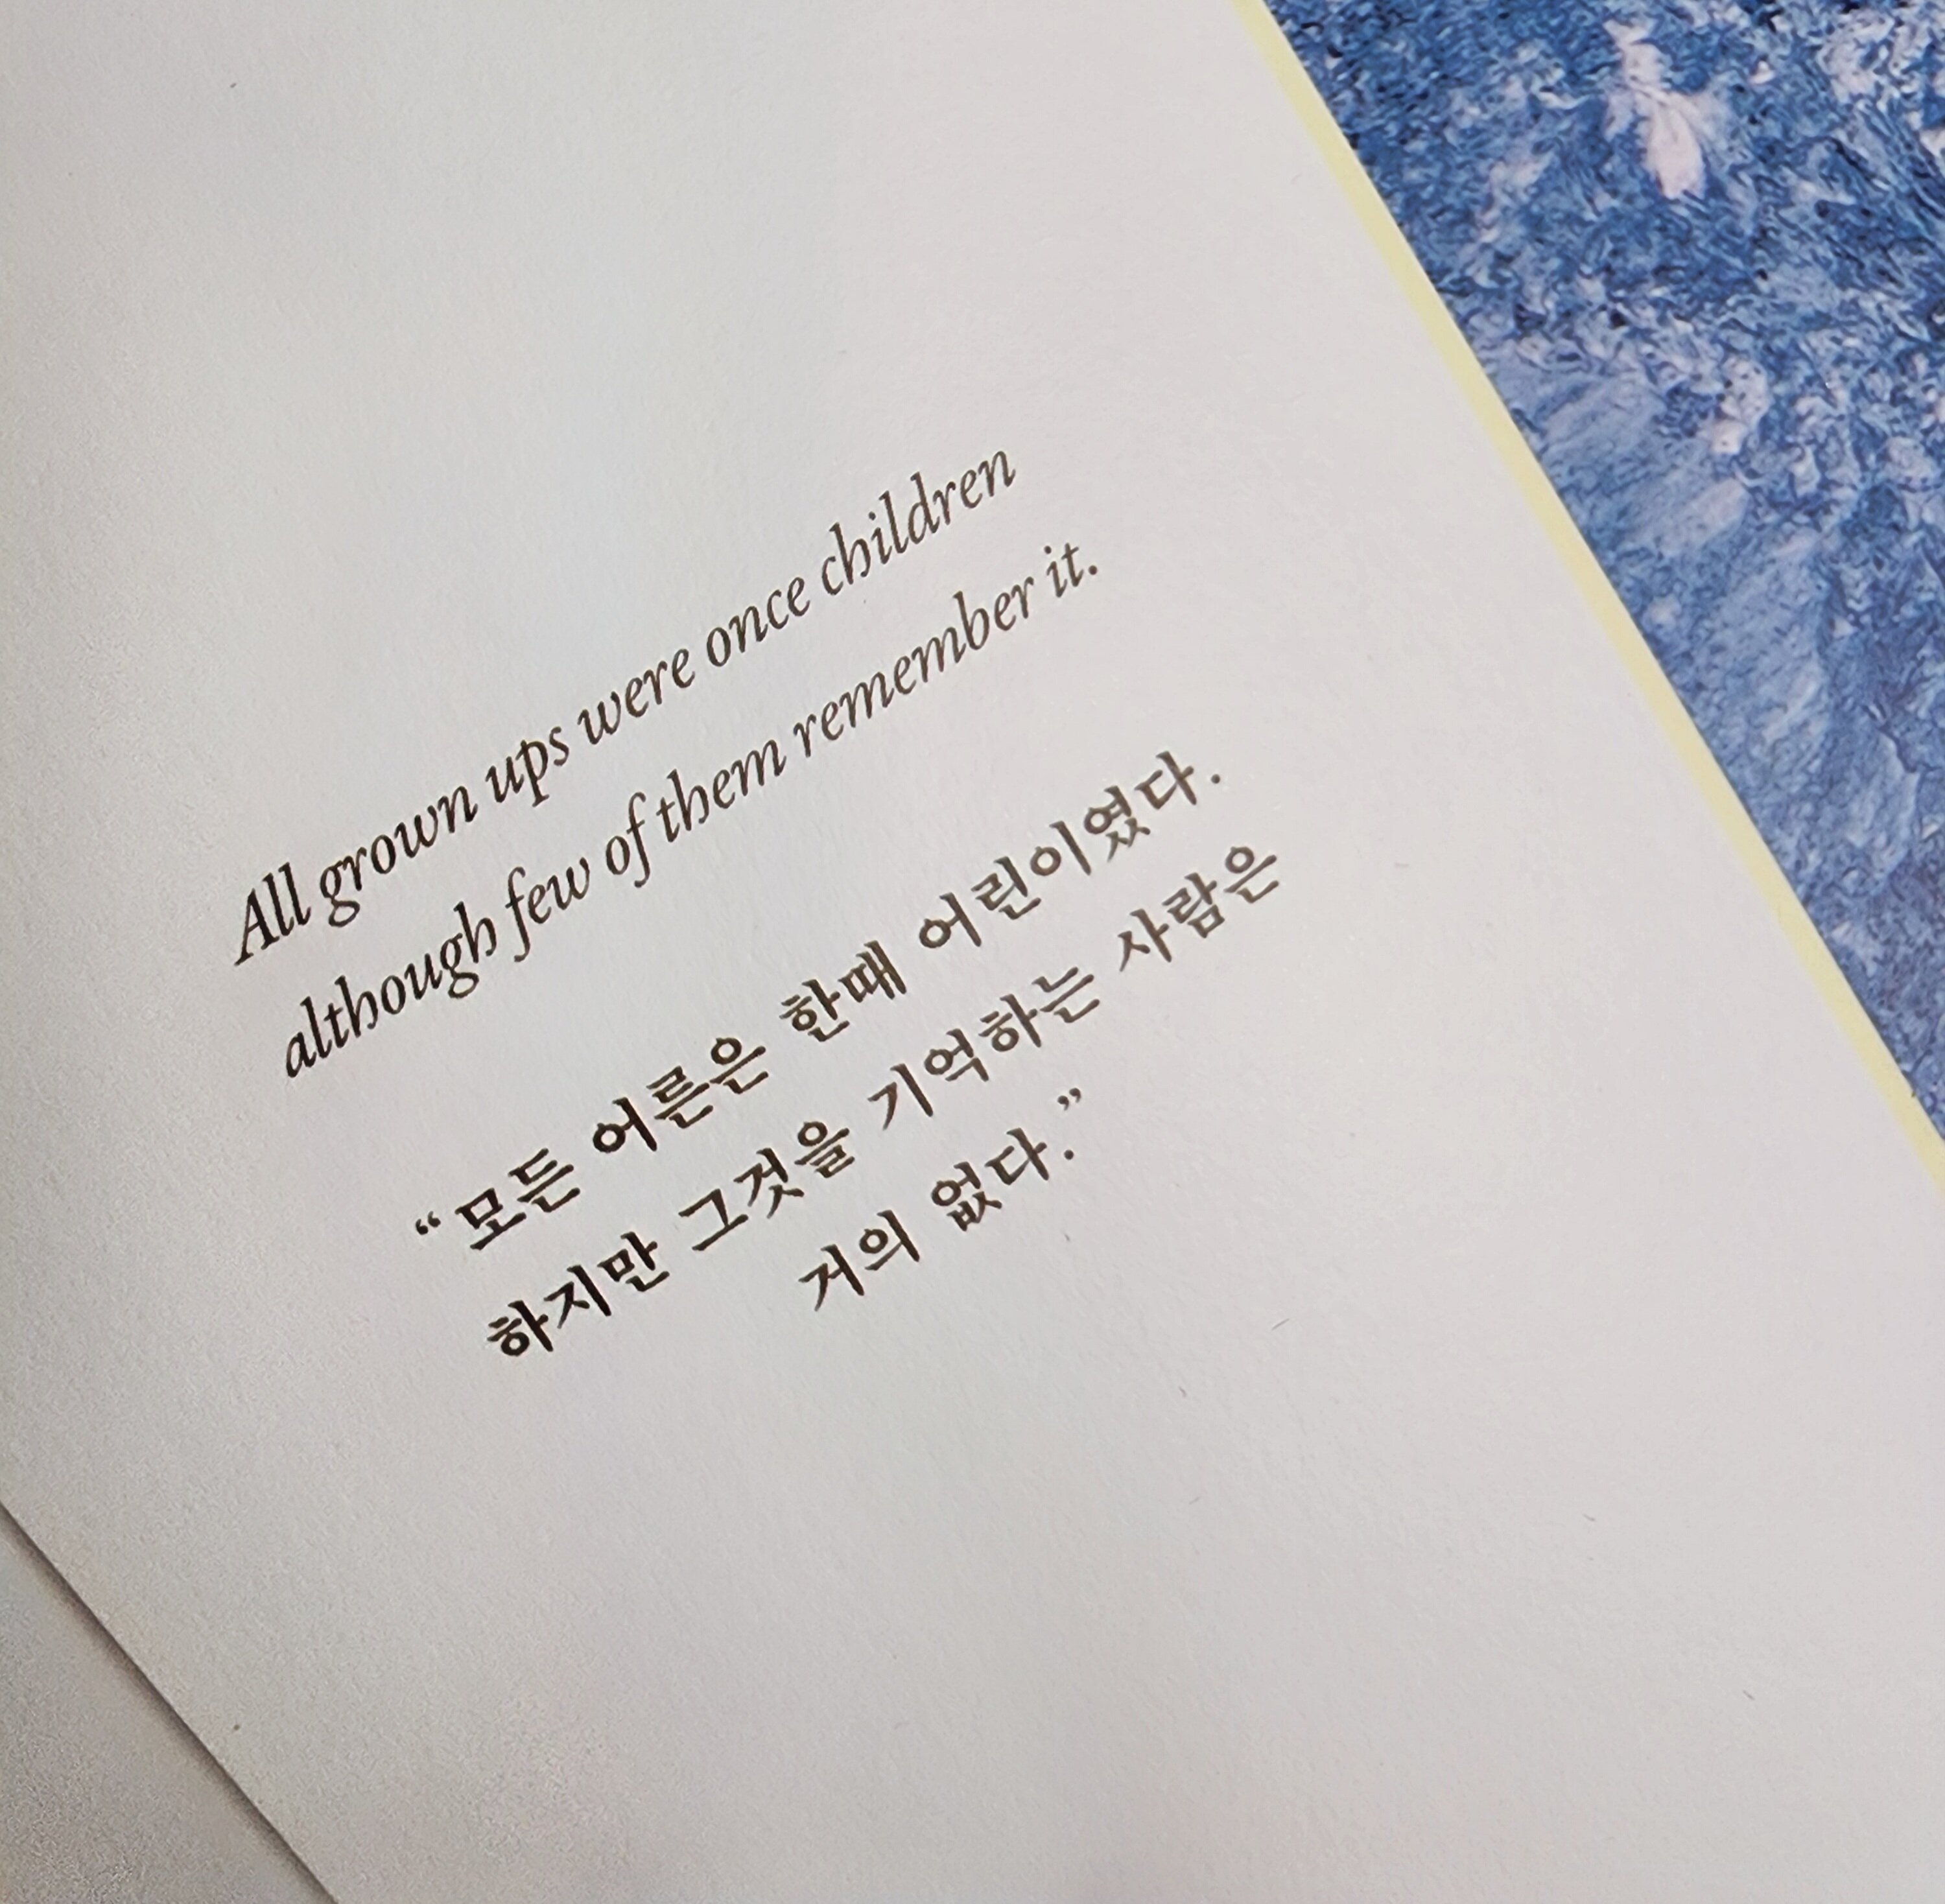 All grown ups were once children
although few of them remember it.
“모든 어른은 한때 어린이였다.
하지만 그것을 기억하는 사람은
거의 없다.”